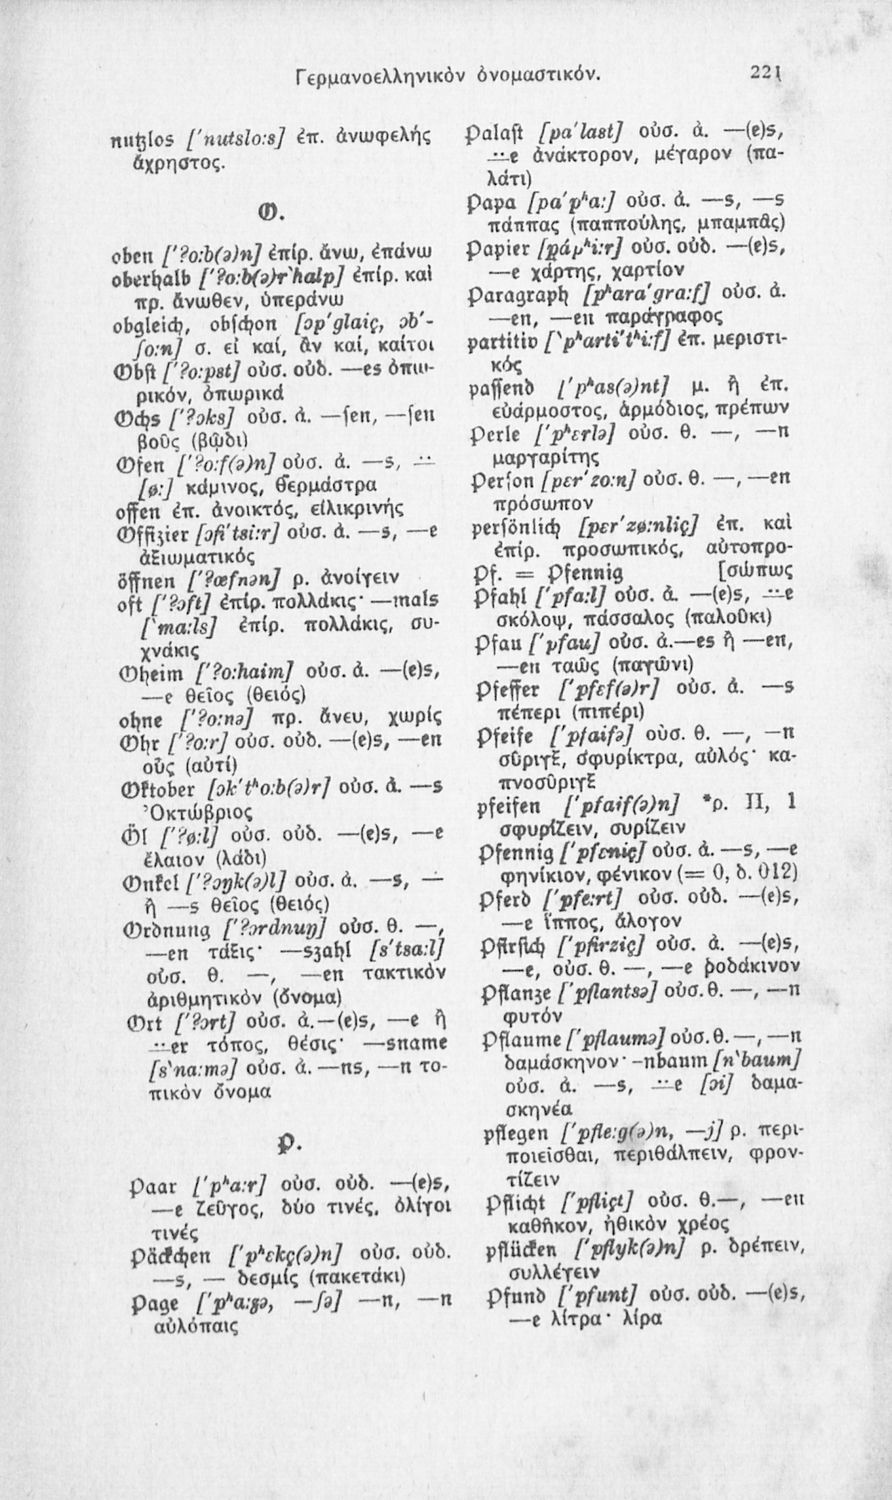 Γερμανοελληνικὸν ὀνομαστικόν.
221
nutzlos ['nutslo:s] ἐπ. ἀνωφελής
ἄχρηστος.
O.
oben ['ʔo:b(ə)n] ἐπίρ. ἄνω, ἐπάνω
oberhalb ['ʔo:b(ə)r`halp] ἐπίρ. καὶ
πρ. ἄνωθεν, ὑπεράνω
obgleich, obſchon [ɔp'glaiç, ɔb'-
ʃo:n] σ. εἰ καί, ἂν καί, καίτοι
Obſt ['ʔo:pst] οὐσ. οὐδ. —es ὀπω-
ρικόν, ὀπωρικά
Ochs ['ʔɔks] οὐσ. ἀ. —ſen, —ſen
βοῦς (βῷδι)
Ofen ['ʔo:f(ə)n] οὐσ. ἀ. —s, ¨
[ø:] κάμινος, θερμάστρα
offen ἐπ. ἀνοικτός, εἰλικρινής
Offizier [ɔfi'tsi:r] οὐσ. ἀ. —s, —e
ἀξιωματικός
öffnen ['ʔœfnən] ρ. ἀνοίγειν
oft ['ʔɔft] ἐπίρ. πολλάκις· —mals
[`ma:ls] ἐπίρ. πολλάκις, συ-
χνάκις
Oheim ['ʔo:haim] οὐσ. ἀ. —(e)s,
—e θεῖος (θειός)
ohne ['ʔo:nə] πρ. ἄνευ, χωρίς
Ohr ['ʔo:r] οὐσ. οὐδ. —(e)s, —en
οὖς (αὐτί)
Oktober [ɔk'tʰo:b(ə)r] οὐσ. ἀ. —s
Ὀκτώβριος
Öl ['ʔø:l] οὐσ. οὐδ. —(e)s, —e
ἔλαιον (λάδι)
Onkel ['ʔɔŋk(ə)l] οὐσ. ἀ. —s, —
ἢ —s θεῖος (θειός)
Ordnung ['ʔɔrdnuŋ] οὐσ. θ. —,
—en τάξις· —szahl [s'tsa:l]
οὐσ. θ. —, —en τακτικὸν
ἀριθμητικὸν (ὄνομα)
Ort ['ʔɔrt] οὐσ. ἀ.—(e)s, —e ἢ
¨er τόπος, θέσις· —sname
[s`na:mə] οὐσ. ἀ. —ns, —n το-
πικὸν ὄνομα
P.
Paar ['pʰa:r] οὐσ. οὐδ. —(e)s,
—e ζεῦγος, δύο τινές, ὀλίγοι
τινές
Päckchen ['pʰɛkç(ə)n] οὐσ. οὐδ.
—s, — δεσμίς (πακετάκι)
Page ['pʰa:ʒə, —ʃə] —n, —n
αὐλόπαις
Palaſt [pa'last] οὐσ. ἀ. —(e)s,
¨e ἀνάκτορον, μέγαρον (πα-
λάτι)
Papa [pa'pʰa:] οὐσ. ἀ. —s, —s
πάππας (παππούλης, μπαμπᾶς)
Papier [pápʰi:r] οὐσ. οὐδ. —(e)s,
—e χάρτης, χαρτίον
Paragraph [pʰara'gra:f] οὐσ. ἀ.
—en, —en παράγραφος
partitiv [`pʰarti'tʰi:f] ἐπ. μεριστι-
κός
paſſend ['pʰas(ə)nt] μ. ἢ ἐπ.
εὐάρμοστος, ἁρμόδιος, πρέπων
Perle ['pʰɛrlə] οὐσ. θ. —, —n
μαργαρίτης
Perſon [pɛr'zo:n] οὐσ. θ. —, —en
πρόσωπον
perſönlich [pɛr'zø:nliç] ἐπ. καὶ
ἐπίρ. προσωπικός, αὐτοπρο-
Pf. = Pfennig [σώπως
Pfahl ['pfa:l] οὐσ. ἀ. —(e)s, ¨e
σκόλοψ, πάσσαλος (παλοῦκι)
Pfau ['pfau] οὐσ. ἀ.—es ἢ —en,
—en ταὼς (παγῶνι)
Pfeffer ['pfɛf(ə)r] οὐσ. ἀ. —s
πέπερι (πιπέρι)
Pfeife ['pfaifə] οὐσ. θ. —, —n
σῦριγξ, σφυρίκτρα, αὐλός· κα-
πνοσῦριγξ
pfeifen ['pfaif(ə)n] *ρ. II, 1
σφυρίζειν, συρίζειν
Pfennig ['pfɛniç] οὐσ. ἀ. —s, —e
φηνίκιον, φένικον (= 0, δ. 012)
Pferd ['pfe:rt] οὐσ. οὐδ. —(e)s,
—e ἵππος, ἄλογον
Pfirſich ['pfirziç] οὐσ. ἀ. —(e)s,
—e, οὐσ. θ. —, —e ῥοδάκινον
Pflanze ['pflantsə] οὐσ. θ. —, —n
φυτόν
Pflaume ['pflaumə] οὐσ. θ. —, —n
δαμάσκηνον· –nbaum [n`baum]
οὐσ. ἀ. —s, ¨e [ɔi] δαμα-
σκηνέα
pflegen ['pfle:g(ə)n, —j] ρ. περι-
ποιεῖσθαι, περιθάλπειν, φρον-
τίζειν
Pflicht ['pfliçt] οὐσ. θ.—, —en
καθῆκον, ἠθικὸν χρέος
pflücken ['pflyk(ə)n] ρ. δρέπειν,
συλλέγειν
Pfund ['pfunt] οὐσ. οὐδ. —(e)s,
—e λίτρα· λίρα